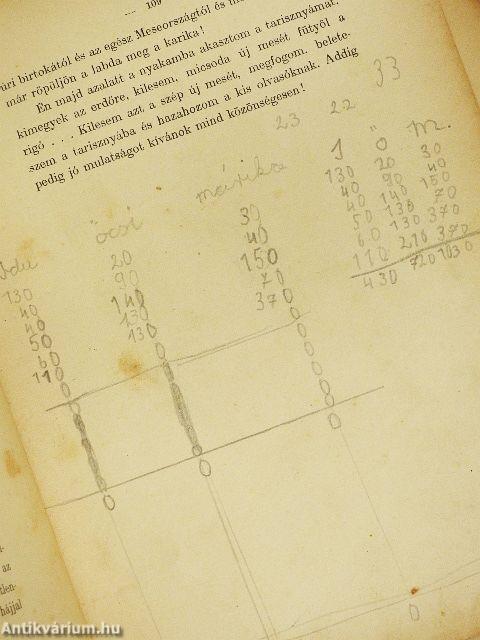 — 109
üri birtokától és az egész Meseországtól és
már röpüljön a labda meg a karika!
Én majd azalatt a nyakamba akasztom a tarisznyámat,
kimegyek az erdőre, kilesem, micsoda új mesét fütyöl a
rigó . . . Kilesem azt a szép új mesét, megfogom, belete-
szem a tarisznyába és hazahozom a kis olvasóknak. Addig
pedig jó mulatságot kívánok mind közönségesen!
23 22 33
öcsi márika J Ö M.
130 20 30
40 90 40
40 140 150
50 130 70
60 130 370
110 210 370
430 720 1030
130 20 30
40 90 40
40 140 150
50 130 70
60 130 370
110 0 0
0 0 0
0 0 0
az
tlen-
hájjal
Antikvárium.hu